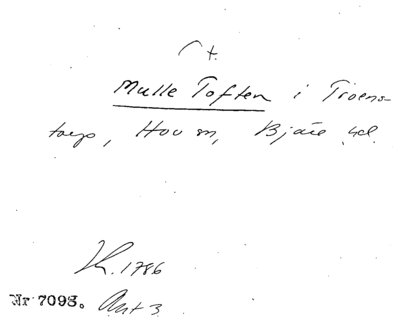 t.
Mulle Toften i Troens-
torp, Hov sn, Bjäre hd.
Lh. 1786
Nr 7093. Ant 3